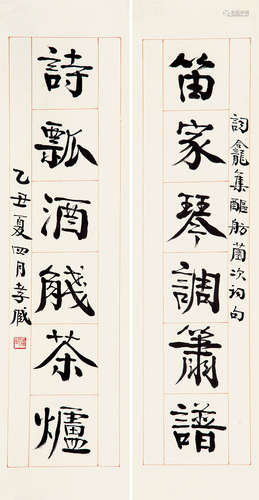 笛家琴調簫譜
詞龕集醧舫薗次詞句
詩瓢酒茶爐
乙丑夏四月孝臧